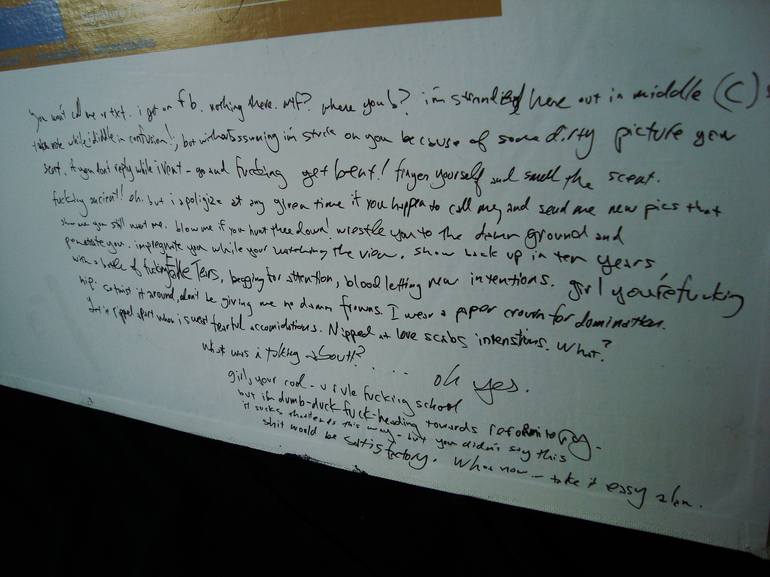 Signature
you won't call me or txt. i get on fb. nothing there. WTF? where you b? i'm strand here out in middle (C)
take note while i diddle in confusion!, but without assuming i'm stuck on you because of some dirty picture you
sent. if you don't reply while i vent - go and fucking get bent! finger yourself and smell the scent.
fucking ancient!! oh. but i apoligize at any given time if you happen to call me, and send me new pics that
show me you still want me. blow me if you hunt thee down! wrestle you to the damn ground and
penetrate you. impregnate you while your watching the view. show back up in ten years
with a bottle of fucking fake Tears. begging for attention, blood letting new intentions. girl you're fucking
hip. so twist it around, don't be giving me no damn frowns. I wear a paper crown for domination.
Get ripped apart when i sweat tearful accomidations. Nipped at love scabs intenstions. What?
what was i talking about!? .... oh yes.
girl, your rad - u rule fucking school
but i'm dumb-duck fuck-heading towards reformitory.
it sucks this way - but you didn't say this
shit would be satisfactory. Whoa now - take it easy